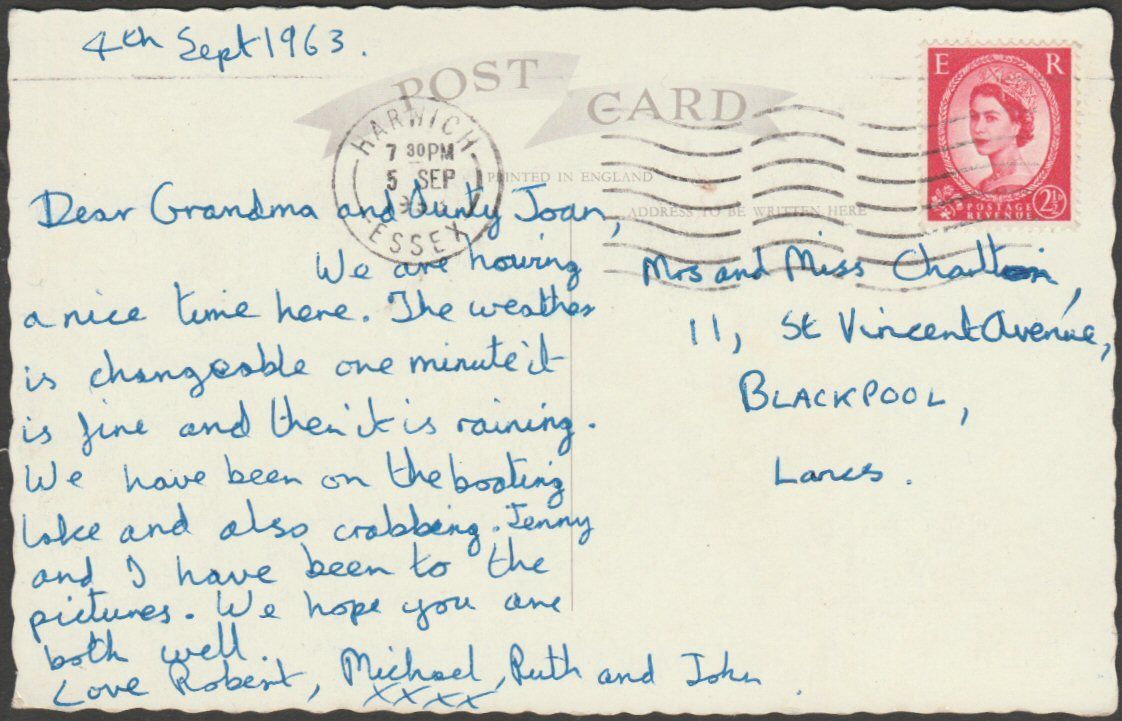 4th Sept 1963.
POST CARD
HARWICH
7 30PM
5 SEP
ESSEX
E R
POSTAGE
REVENUE
2½D
PRINTED IN ENGLAND
ADDRESS TO BE WRITTEN HERE
Dear Grandma and Aunty Joan,
We are having
a nice time here. The weather
is changeable one minute it
is fine and then it is raining.
We have been on the boating
lake and also crabbing. Jenny
and I have been to the
pictures. We hope you are
both well.
Love Robert, Michael, Ruth and John.
xxxx
Mrs and Miss Charlton,
11, St Vincent Avenue,
BLACKPOOL,
Lancs.